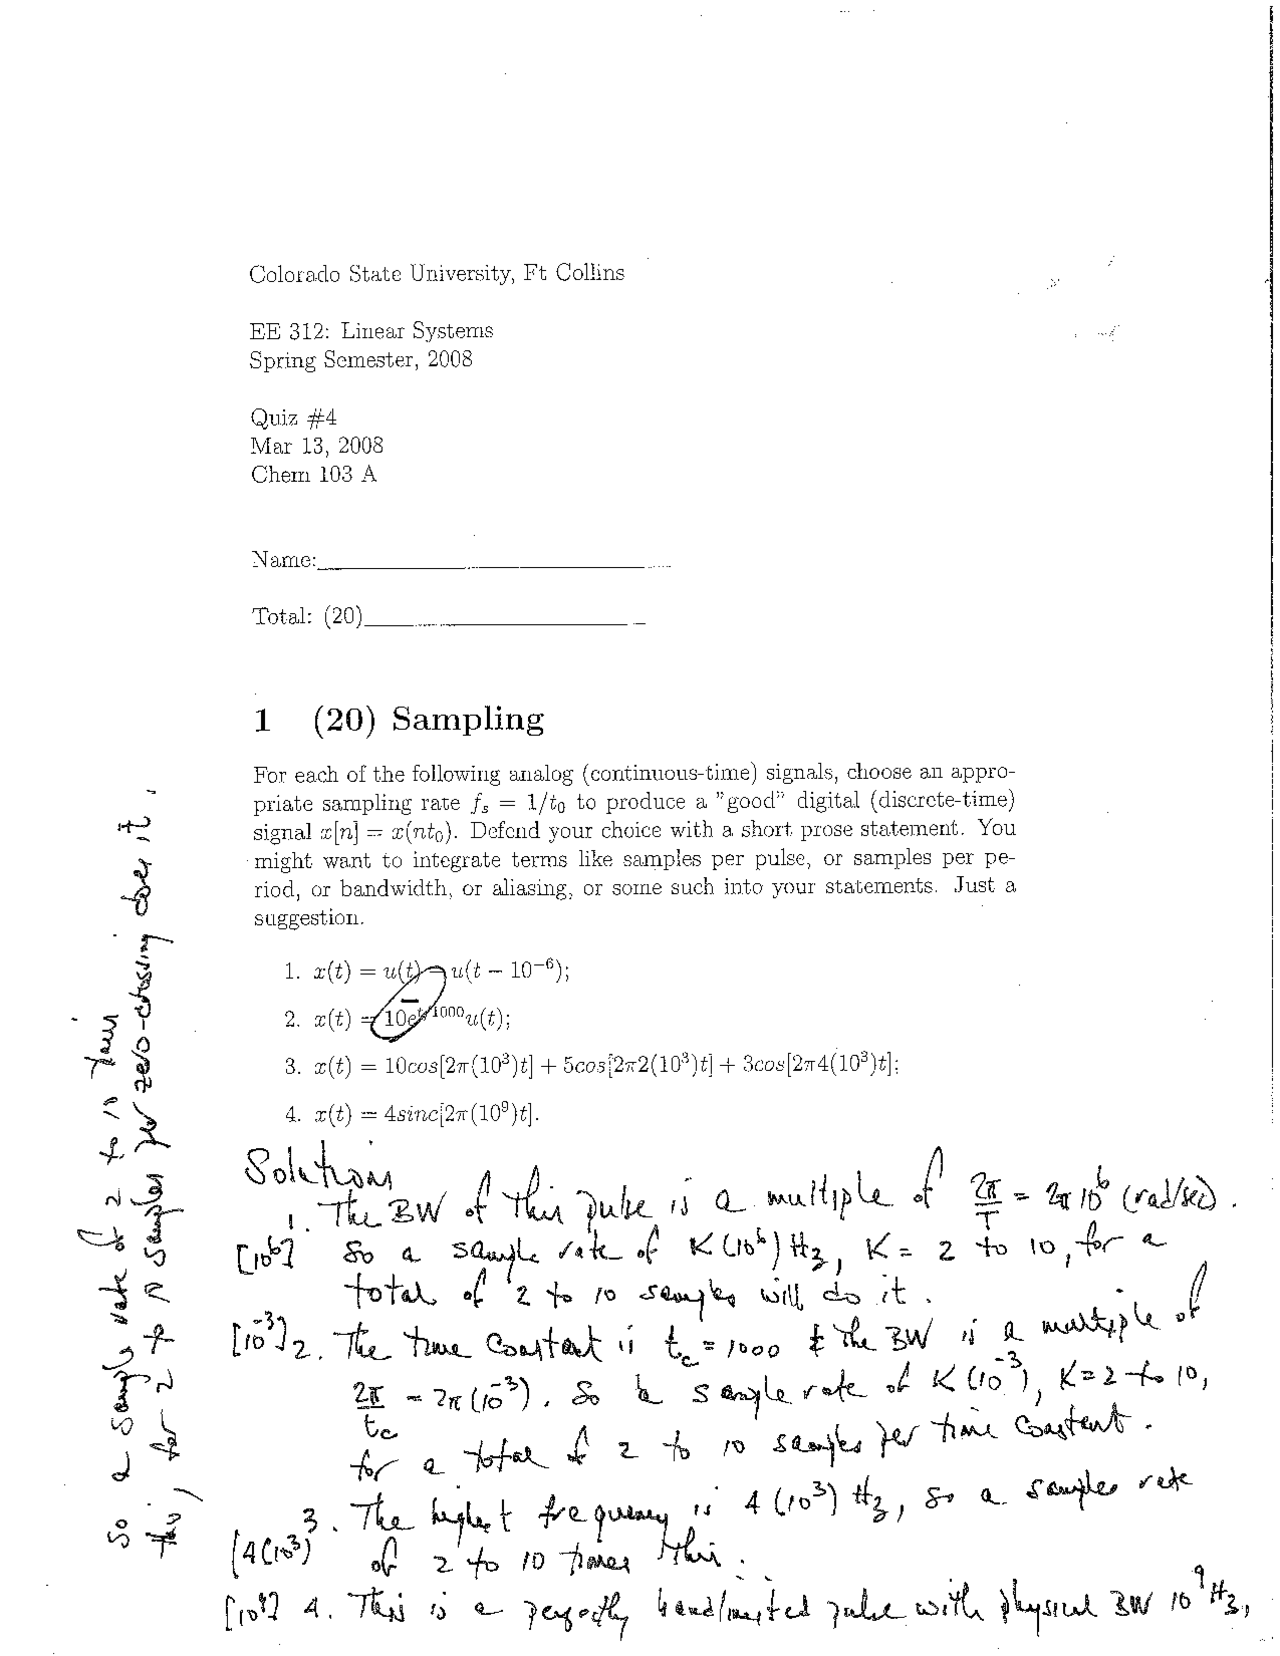 Colorado State University, Ft Collins
EE 312: Linear Systems
Spring Semester, 2008
Quiz #4
Mar 13, 2008
Chem 103 A
Name:
Total: (20)
1 (20) Sampling
For each of the following analog (continuous-time) signals, choose an appro-
priate sampling rate fₛ = 1/t₀ to produce a "good" digital (discrete-time)
signal x[n] = x(nt₀). Defend your choice with a short prose statement. You
might want to integrate terms like samples per pulse, or samples per pe-
riod, or bandwidth, or aliasing, or some such into your statements. Just a
suggestion.
1. x(t) = u(t) − u(t − 10⁻⁶);
2. x(t) = 10e⁻ᵗ/¹⁰⁰⁰u(t);
3. x(t) = 10cos[2π(10³)t] + 5cos[2π2(10³)t] + 3cos[2π4(10³)t];
4. x(t) = 4sinc[2π(10⁹)t].
Solutions
1. The BW of this pulse is a multiple of 2π/T = 2π10⁶ (rad/sec).
[10⁶] So a sample rate of K(10⁶) Hz, K = 2 to 10, for a
total of 2 to 10 samples will do it.
[10⁻³] 2. The time constant is t_c = 1000 & the BW is a multiple of
2π/t_c = 2π(10⁻³). So a sample rate of K(10⁻³), K=2 to 10,
for a total of 2 to 10 samples per time constant.
3. The highest frequency is 4(10³) Hz, so a samples rate
[4(10³)] of 2 to 10 times this.
[10⁹] 4. This is a perfectly bandlimited pulse with physical BW 10⁹ Hz,
So a sample rate of 2 to 10 times
this, for 2 to 10 samples per zero-crossing does it.